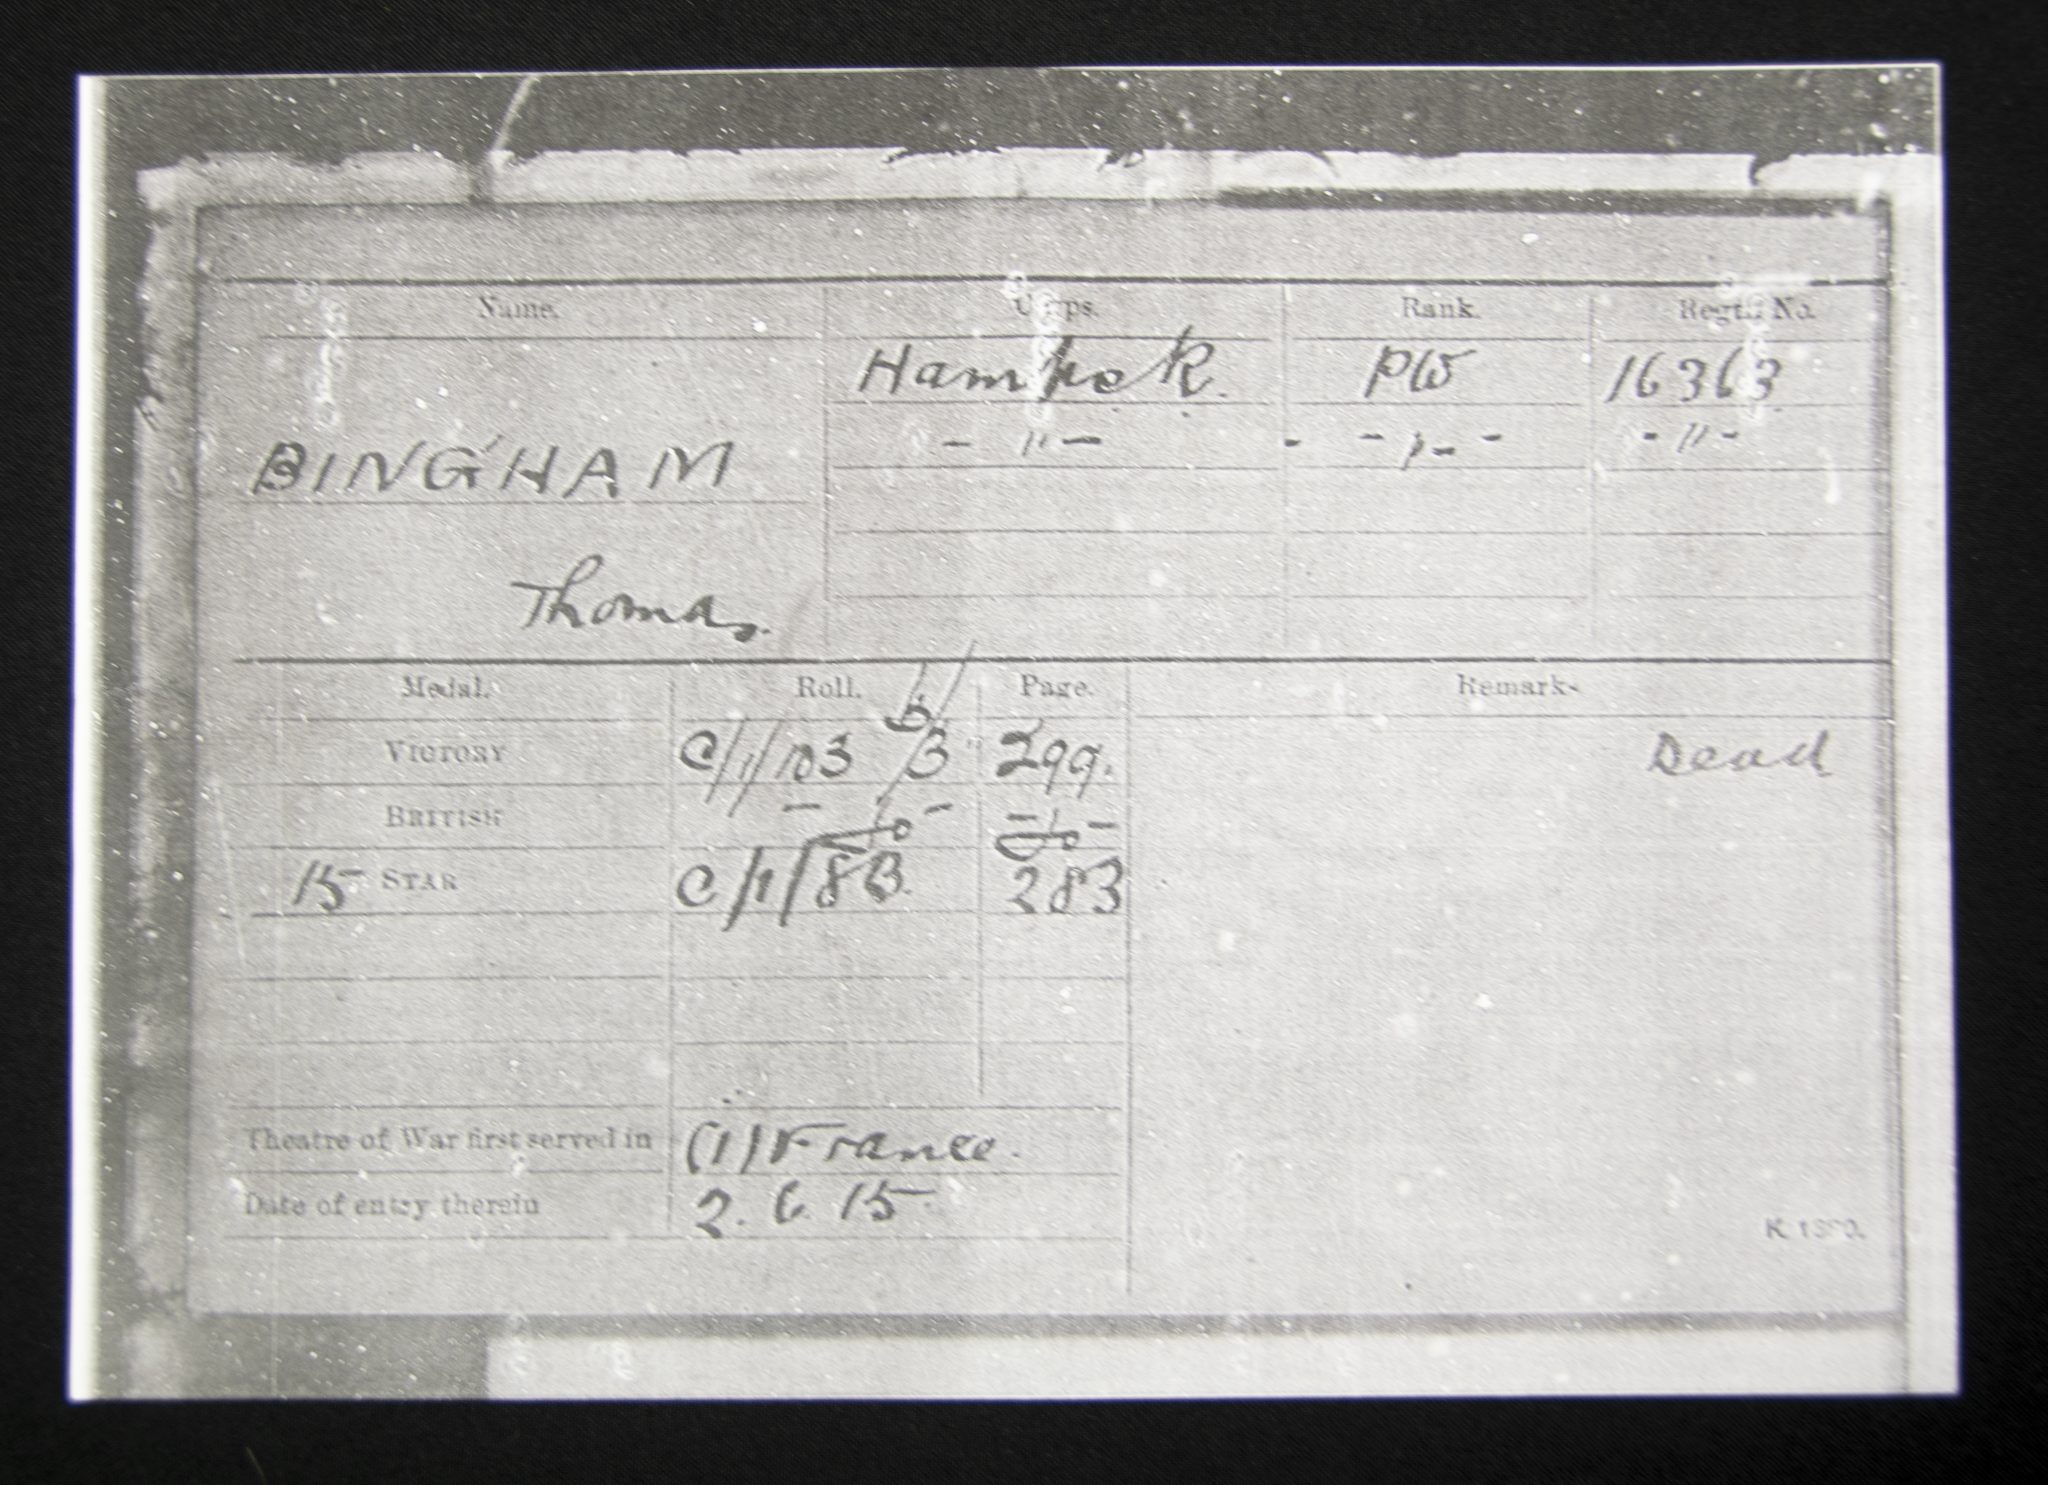 Name. Corps. Rank. Regtl. No.
Hamps R. Pte 16363
- " - - " - - " -
BINGHAM
Thomas.
Medal. Roll. Page. Remarks
VICTORY C/1/103 B 299. Dead
BRITISH - do - - do -
15 STAR C/1/8B. 283
Theatre of War first served in (1) France.
Date of entry therein 2. 6. 15.